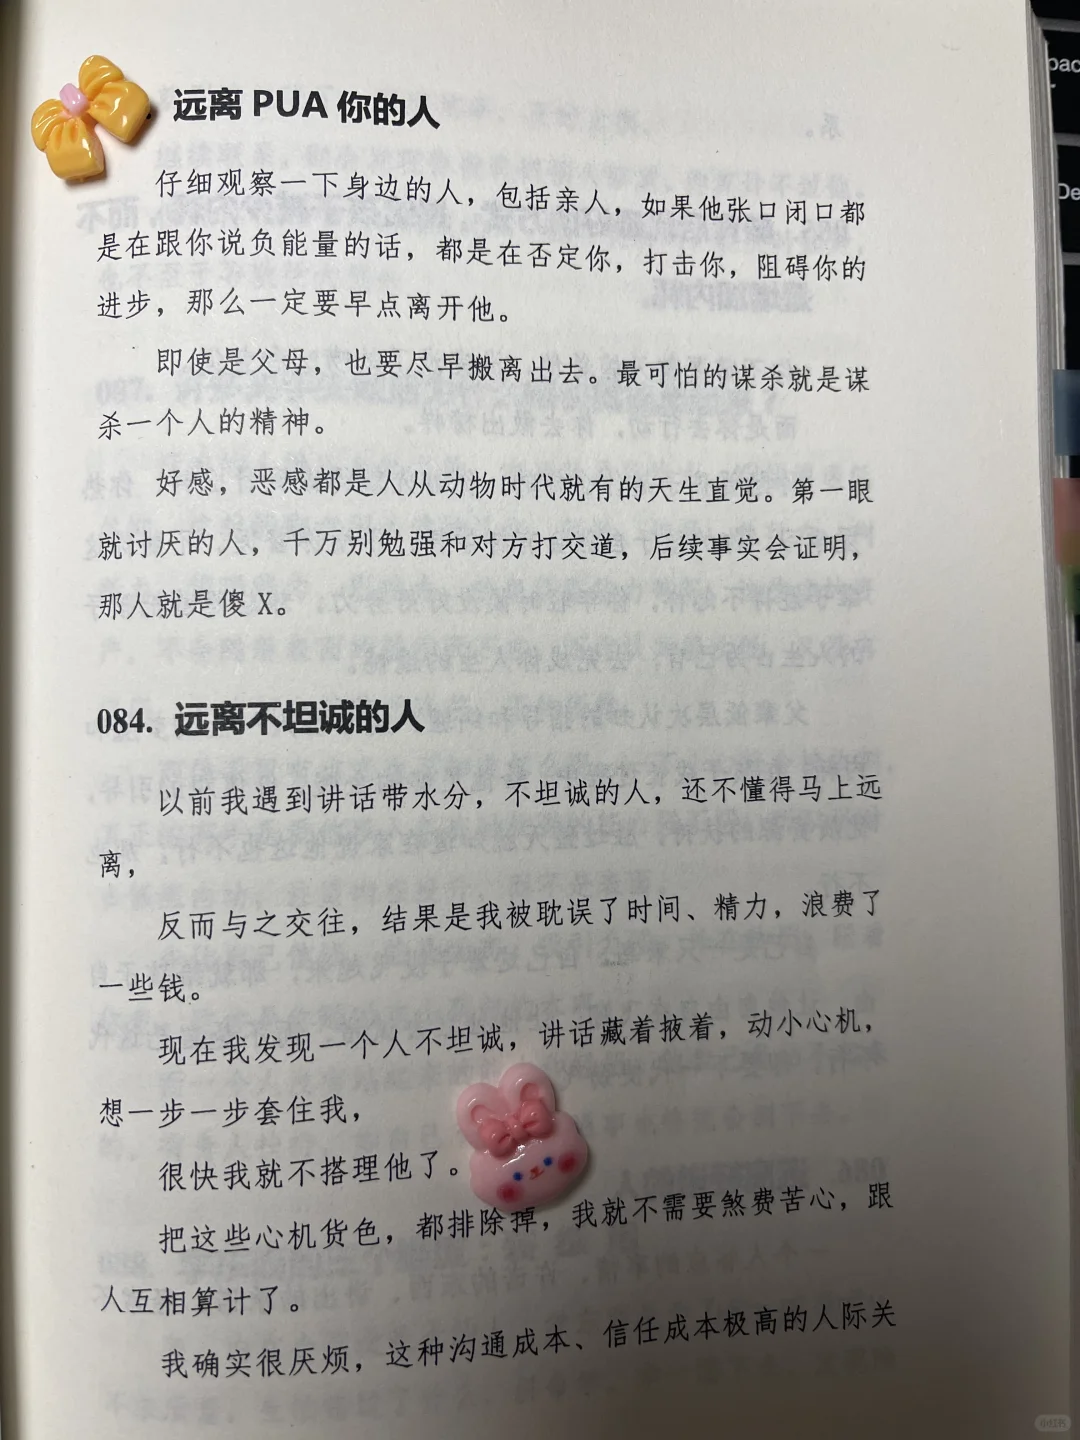 . 远离 PUA 你的人
仔细观察一下身边的人，包括亲人，如果他张口闭口都
是在跟你说负能量的话，都是在否定你，打击你，阻碍你的
进步，那么一定要早点离开他。
即使是父母，也要尽早搬离出去。最可怕的谋杀就是谋
杀一个人的精神。
好感，恶感都是人从动物时代就有的天生直觉。第一眼
就讨厌的人，千万别勉强和对方打交道，后续事实会证明，
那人就是傻 X。
084. 远离不坦诚的人
以前我遇到讲话带水分，不坦诚的人，还不懂得马上远
离，
反而与之交往，结果是我被耽误了时间、精力，浪费了
一些钱。
现在我发现一个人不坦诚，讲话藏着掖着，动小心机，
想一步一步套住我，
很快我就不搭理他了。
把这些心机货色，都排除掉，我就不需要煞费苦心，跟
人互相算计了。
我确实很厌烦，这种沟通成本、信任成本极高的人际关
小红书